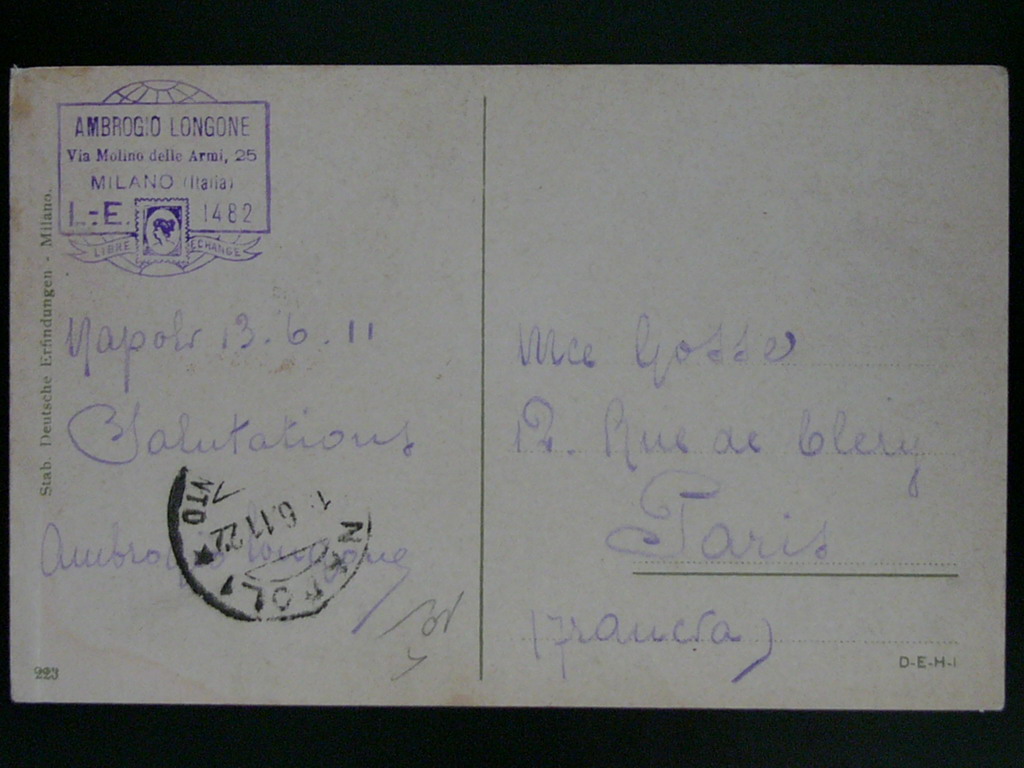 AMBROGIO LONGONE
Via Molino delle Armi, 25
MILANO (Italia)
L.-E. 1482
LIBRE ECHANGE
Stab. Deutsche Erfindungen - Milano.
Napoli 13.6.11
Salutations
Ambrogio Longone
NAPOLI
6.11 22
223
Gosse
12. Rue de Clery
Paris
(Francia)
D-E-H-I